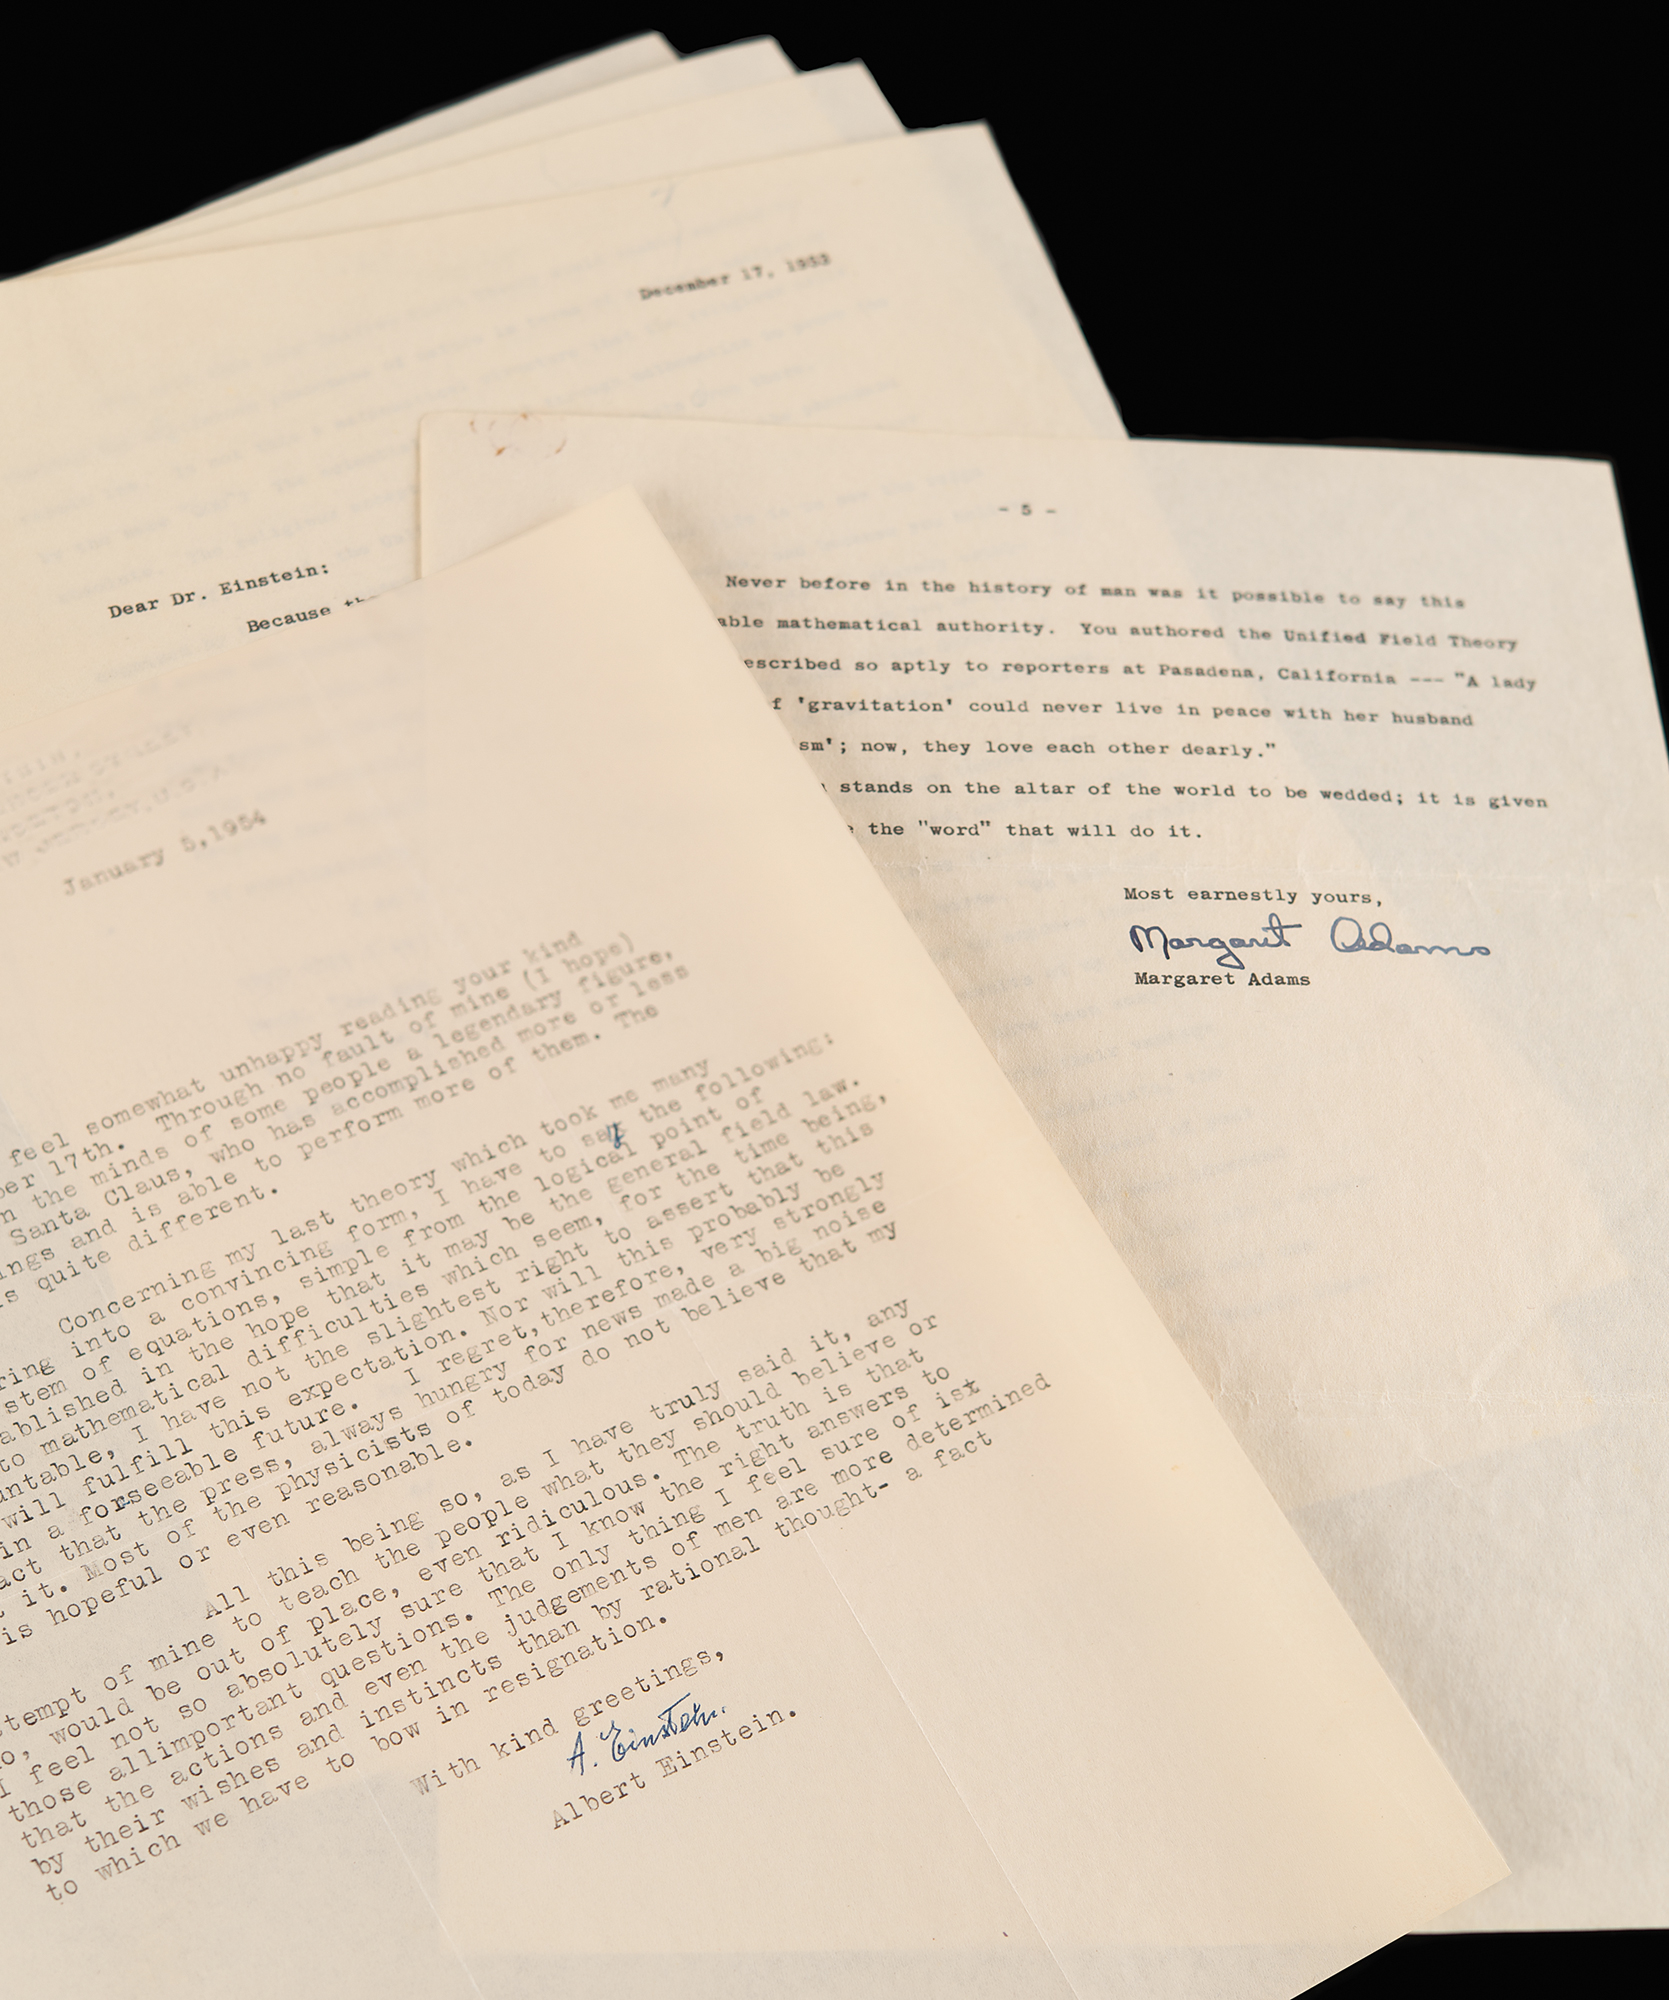 December 17, 1953
Dear Dr. Einstein:
Because
- 5 -
Never before in the history of man was it possible to say this
able mathematical authority. You authored the Unified Field Theory
escribed so aptly to reporters at Pasadena, California --- "A lady
f 'gravitation' could never live in peace with her husband
sm'; now, they love each other dearly."
stands on the altar of the world to be wedded; it is given
the "word" that will do it.
Most earnestly yours,
Margaret Adams
Margaret Adams
January 5,1954
feel somewhat unhappy reading your kind
ber 17th. Through no fault of mine (I hope)
n the minds of some people a legendary figure,
Santa Claus, who has accomplished more or less
ings and is able to perform more of them. The
s quite different.
Concerning my last theory which took me many
ring into a convincing form, I have to say the following:
stem of equations, simple from the logical point of
ablished in the hope that it may be the general field law.
to mathematical difficulties which seem, for the time being,
untable, I have not the slightest right to assert that this
will fulfill this expectation. Nor will this probably be
in a forseeable future. I regret,therefore, very strongly
act that the press, always hungry for news made a big noise
t it. Most of the physicists of today do not believe that my
is hopeful or even reasonable.
All this being so, as I have truly said it, any
ttempt of mine to teach the people what they should believe or
o, would be out of place, even ridiculous. The truth is that
I feel not so absolutely sure that I know the right answers to
those allimportant questions. The only thing I feel sure of ist
that the actions and even the judgements of men are more determined
by their wishes and instincts than by rational thought- a fact
to which we have to bow in resignation.
With kind greetings,
A. Einstein.
Albert Einstein.